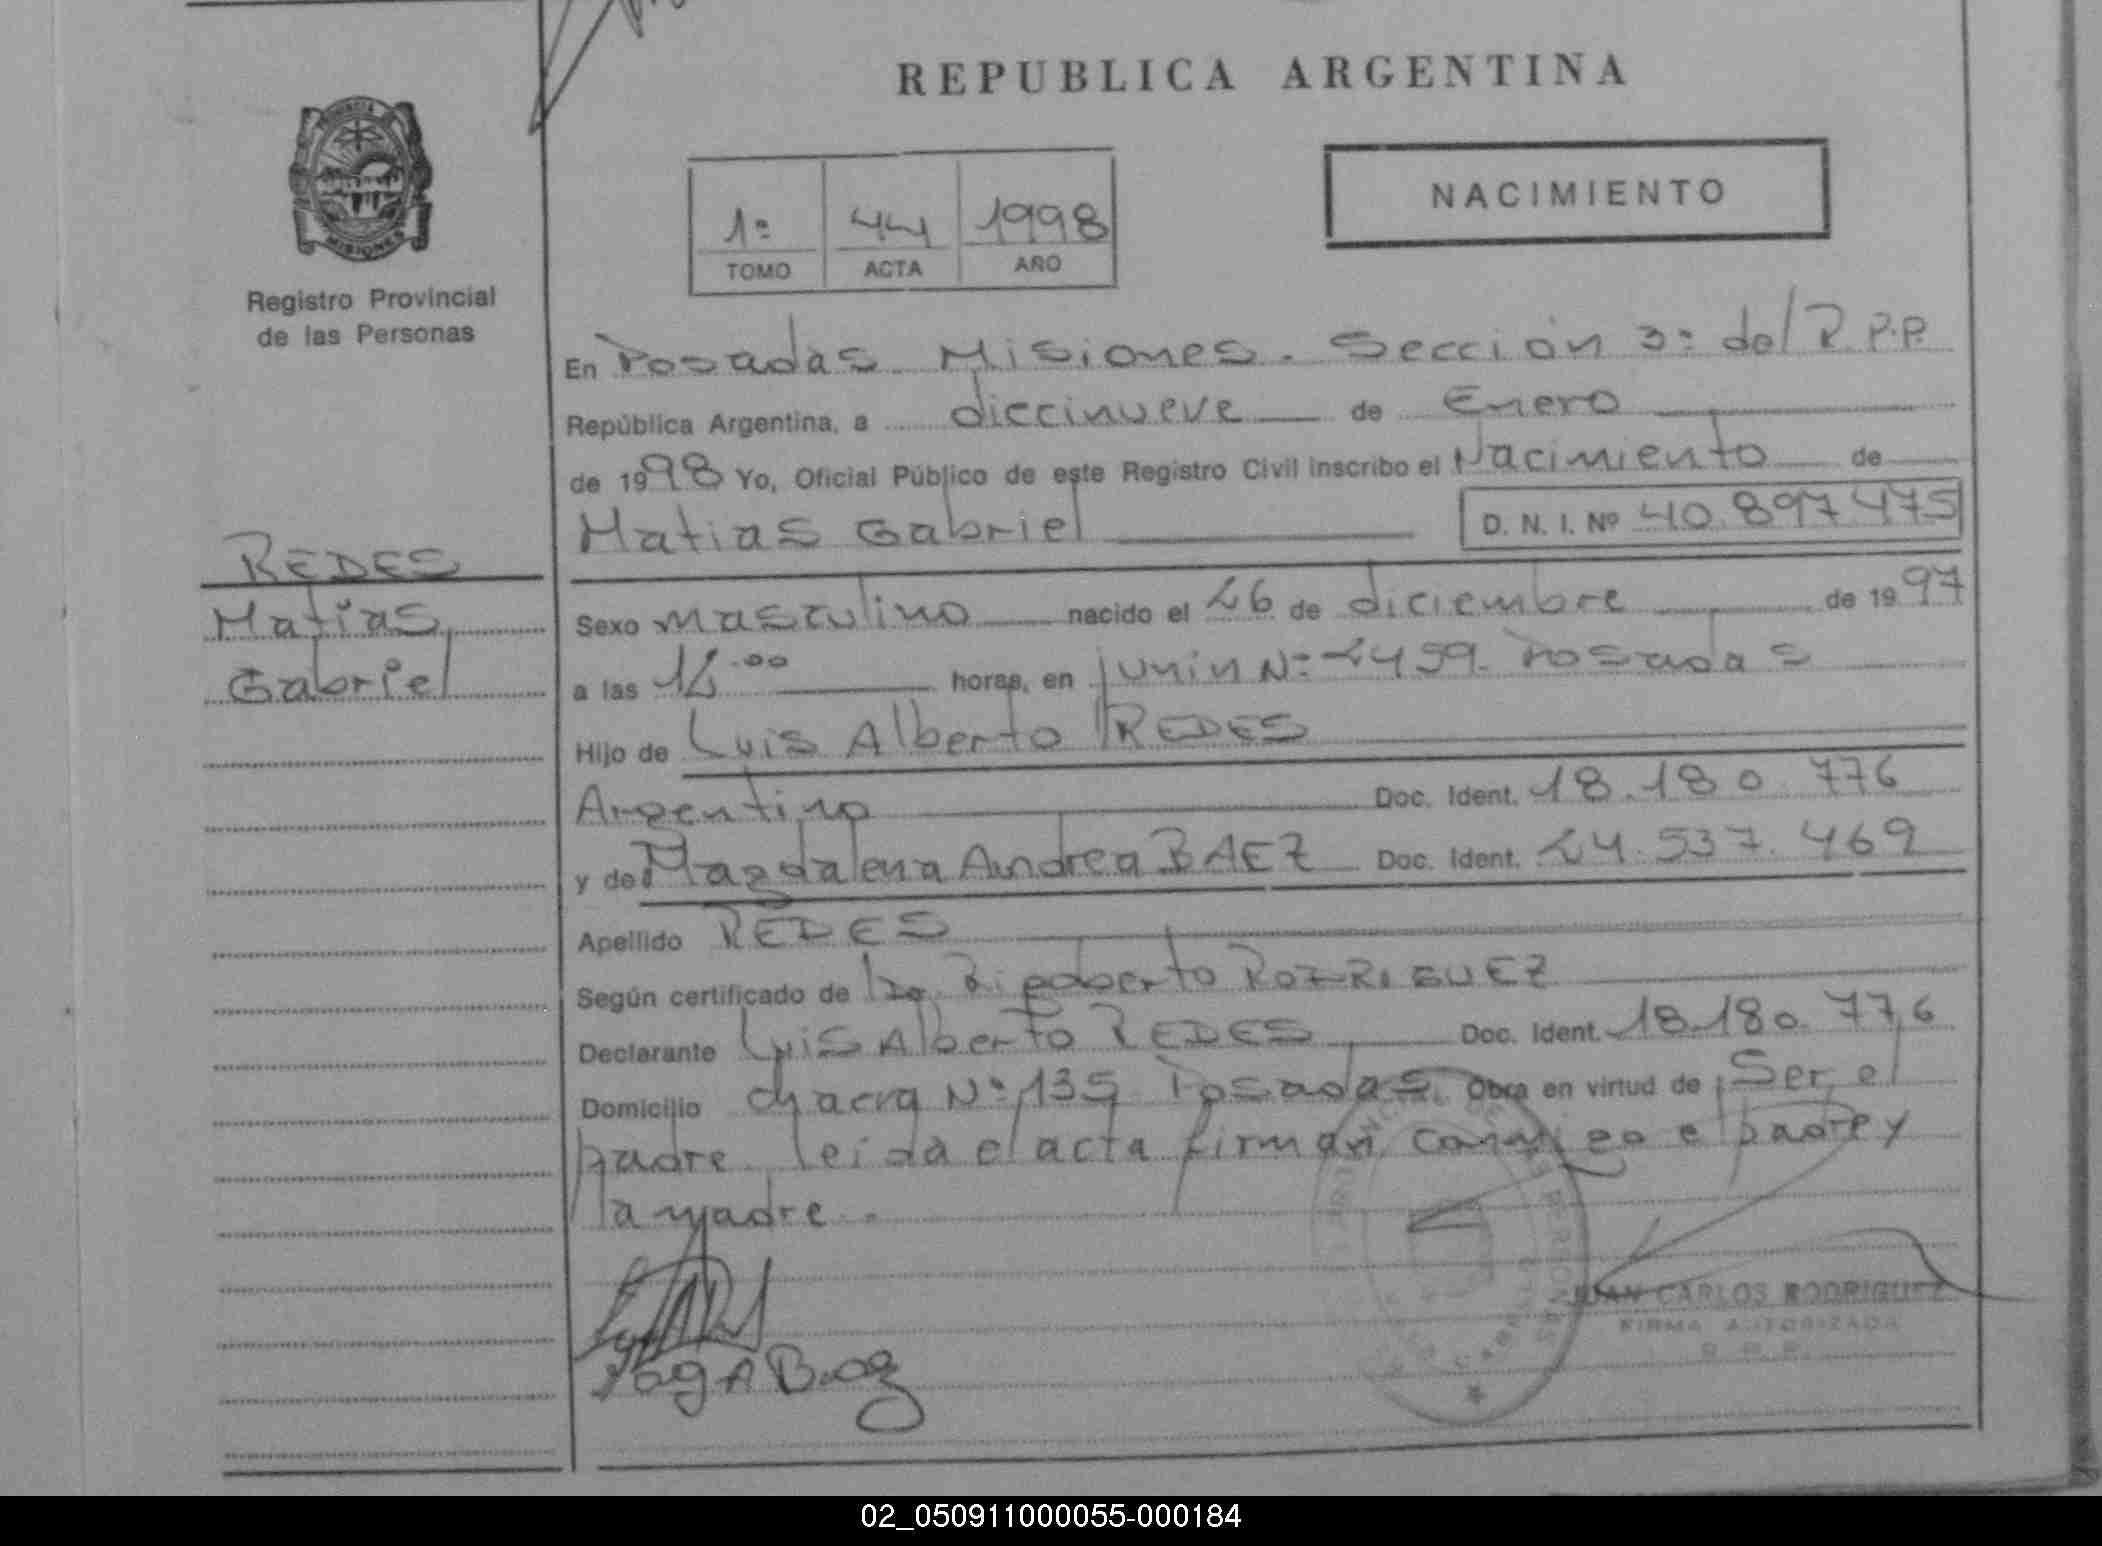 REPUBLICA ARGENTINA
NACIMIENTO
1º 44 1998
TOMO ACTA AÑO
MISIONES
Registro Provincial
de las Personas
En Posadas Misiones. Sección 3º del R.P.P.
República Argentina, a diecinueve de Enero
de 1998 Yo, Oficial Público de este Registro Civil inscribo el Nacimiento de
Matias Gabriel D. N. I. Nº 40.897.475
REDES
Matias
Gabriel
Sexo masculino nacido el 26 de diciembre de 1997
a las horas, en Junin Nº 2459. Posadas
Hijo de Luis Alberto REDES
Argentino Doc. Ident. 18.180.776
y de Magdalena Andrea BAEZ Doc. Ident. 24.537.469
Apellido REDES
Según certificado de Dr. Rigoberto RODRIGUEZ
Declarante Luis Alberto REDES Doc. Ident. 18.180.776
Domicilio chacra Nº 135 Posadas. Obra en virtud de Ser el
padre leida el acta firman conmigo el padre y
la madre.
JUAN CARLOS RODRIGUEZ
FIRMA AUTORIZADA
R. P. P.
02_050911000055-000184